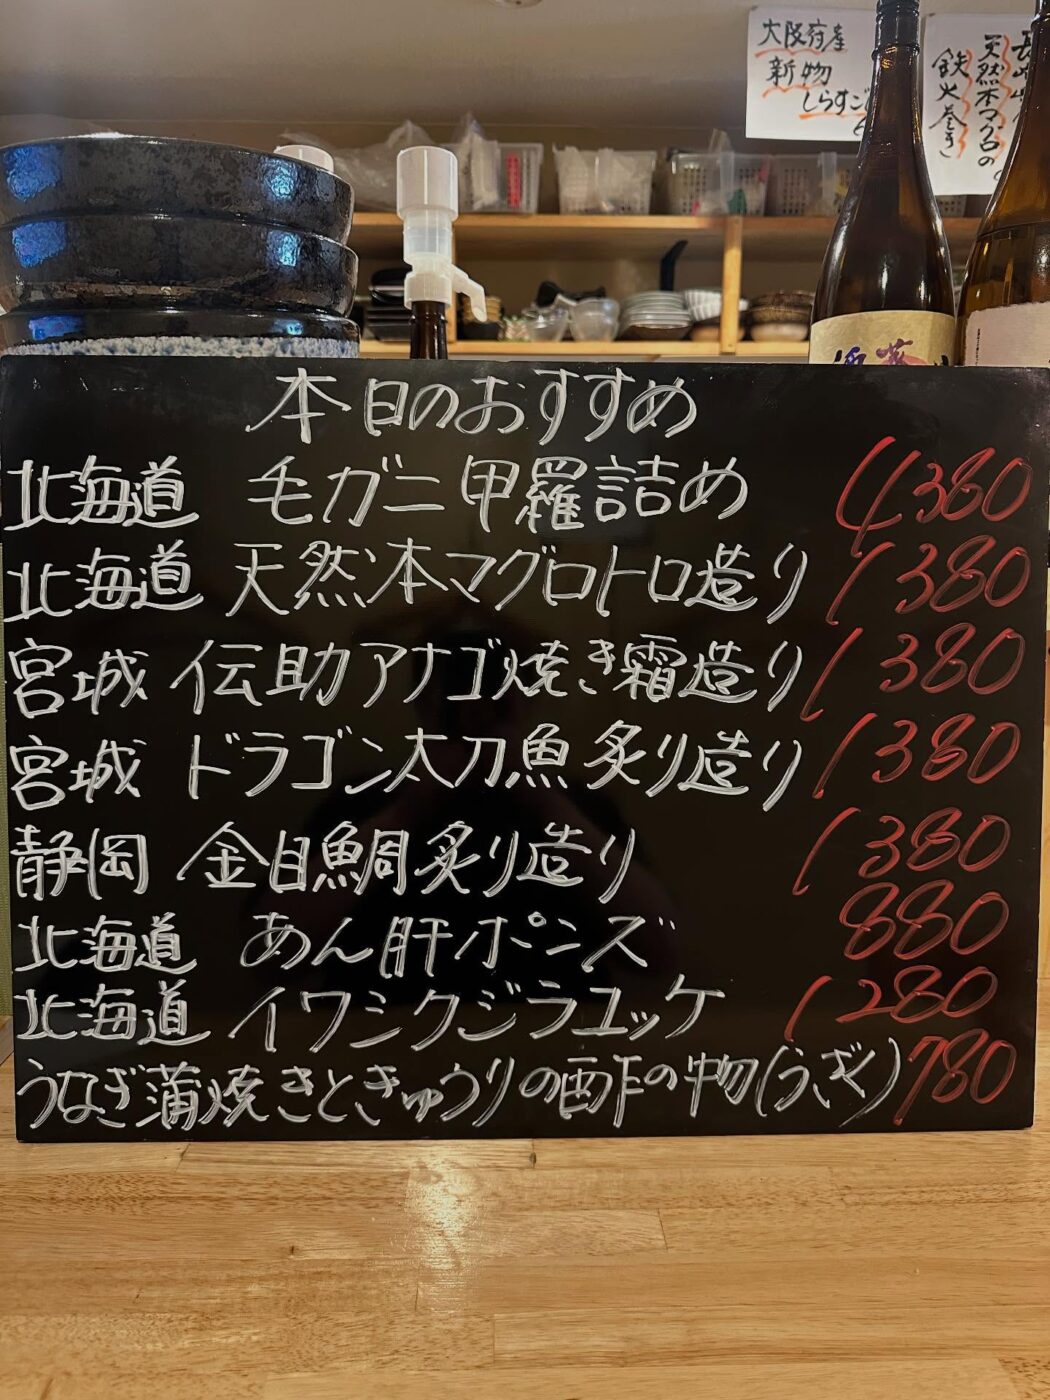 大阪府産
新物
しらすご
天然本マグロの
鉄火巻き
本日のおすすめ
北海道 毛ガニ甲羅詰め 4380
北海道 天然本マグロトロ造り 1380
宮城 伝助アナゴ焼き霜造り 1380
宮城 ドラゴン太刀魚炙り造り 1380
静岡 金目鯛炙り造り 1380
北海道 あん肝ポンズ 880
北海道 イワシクジラユッケ 1280
うなぎ蒲焼きときゅうりの酢の物(うざく) 780